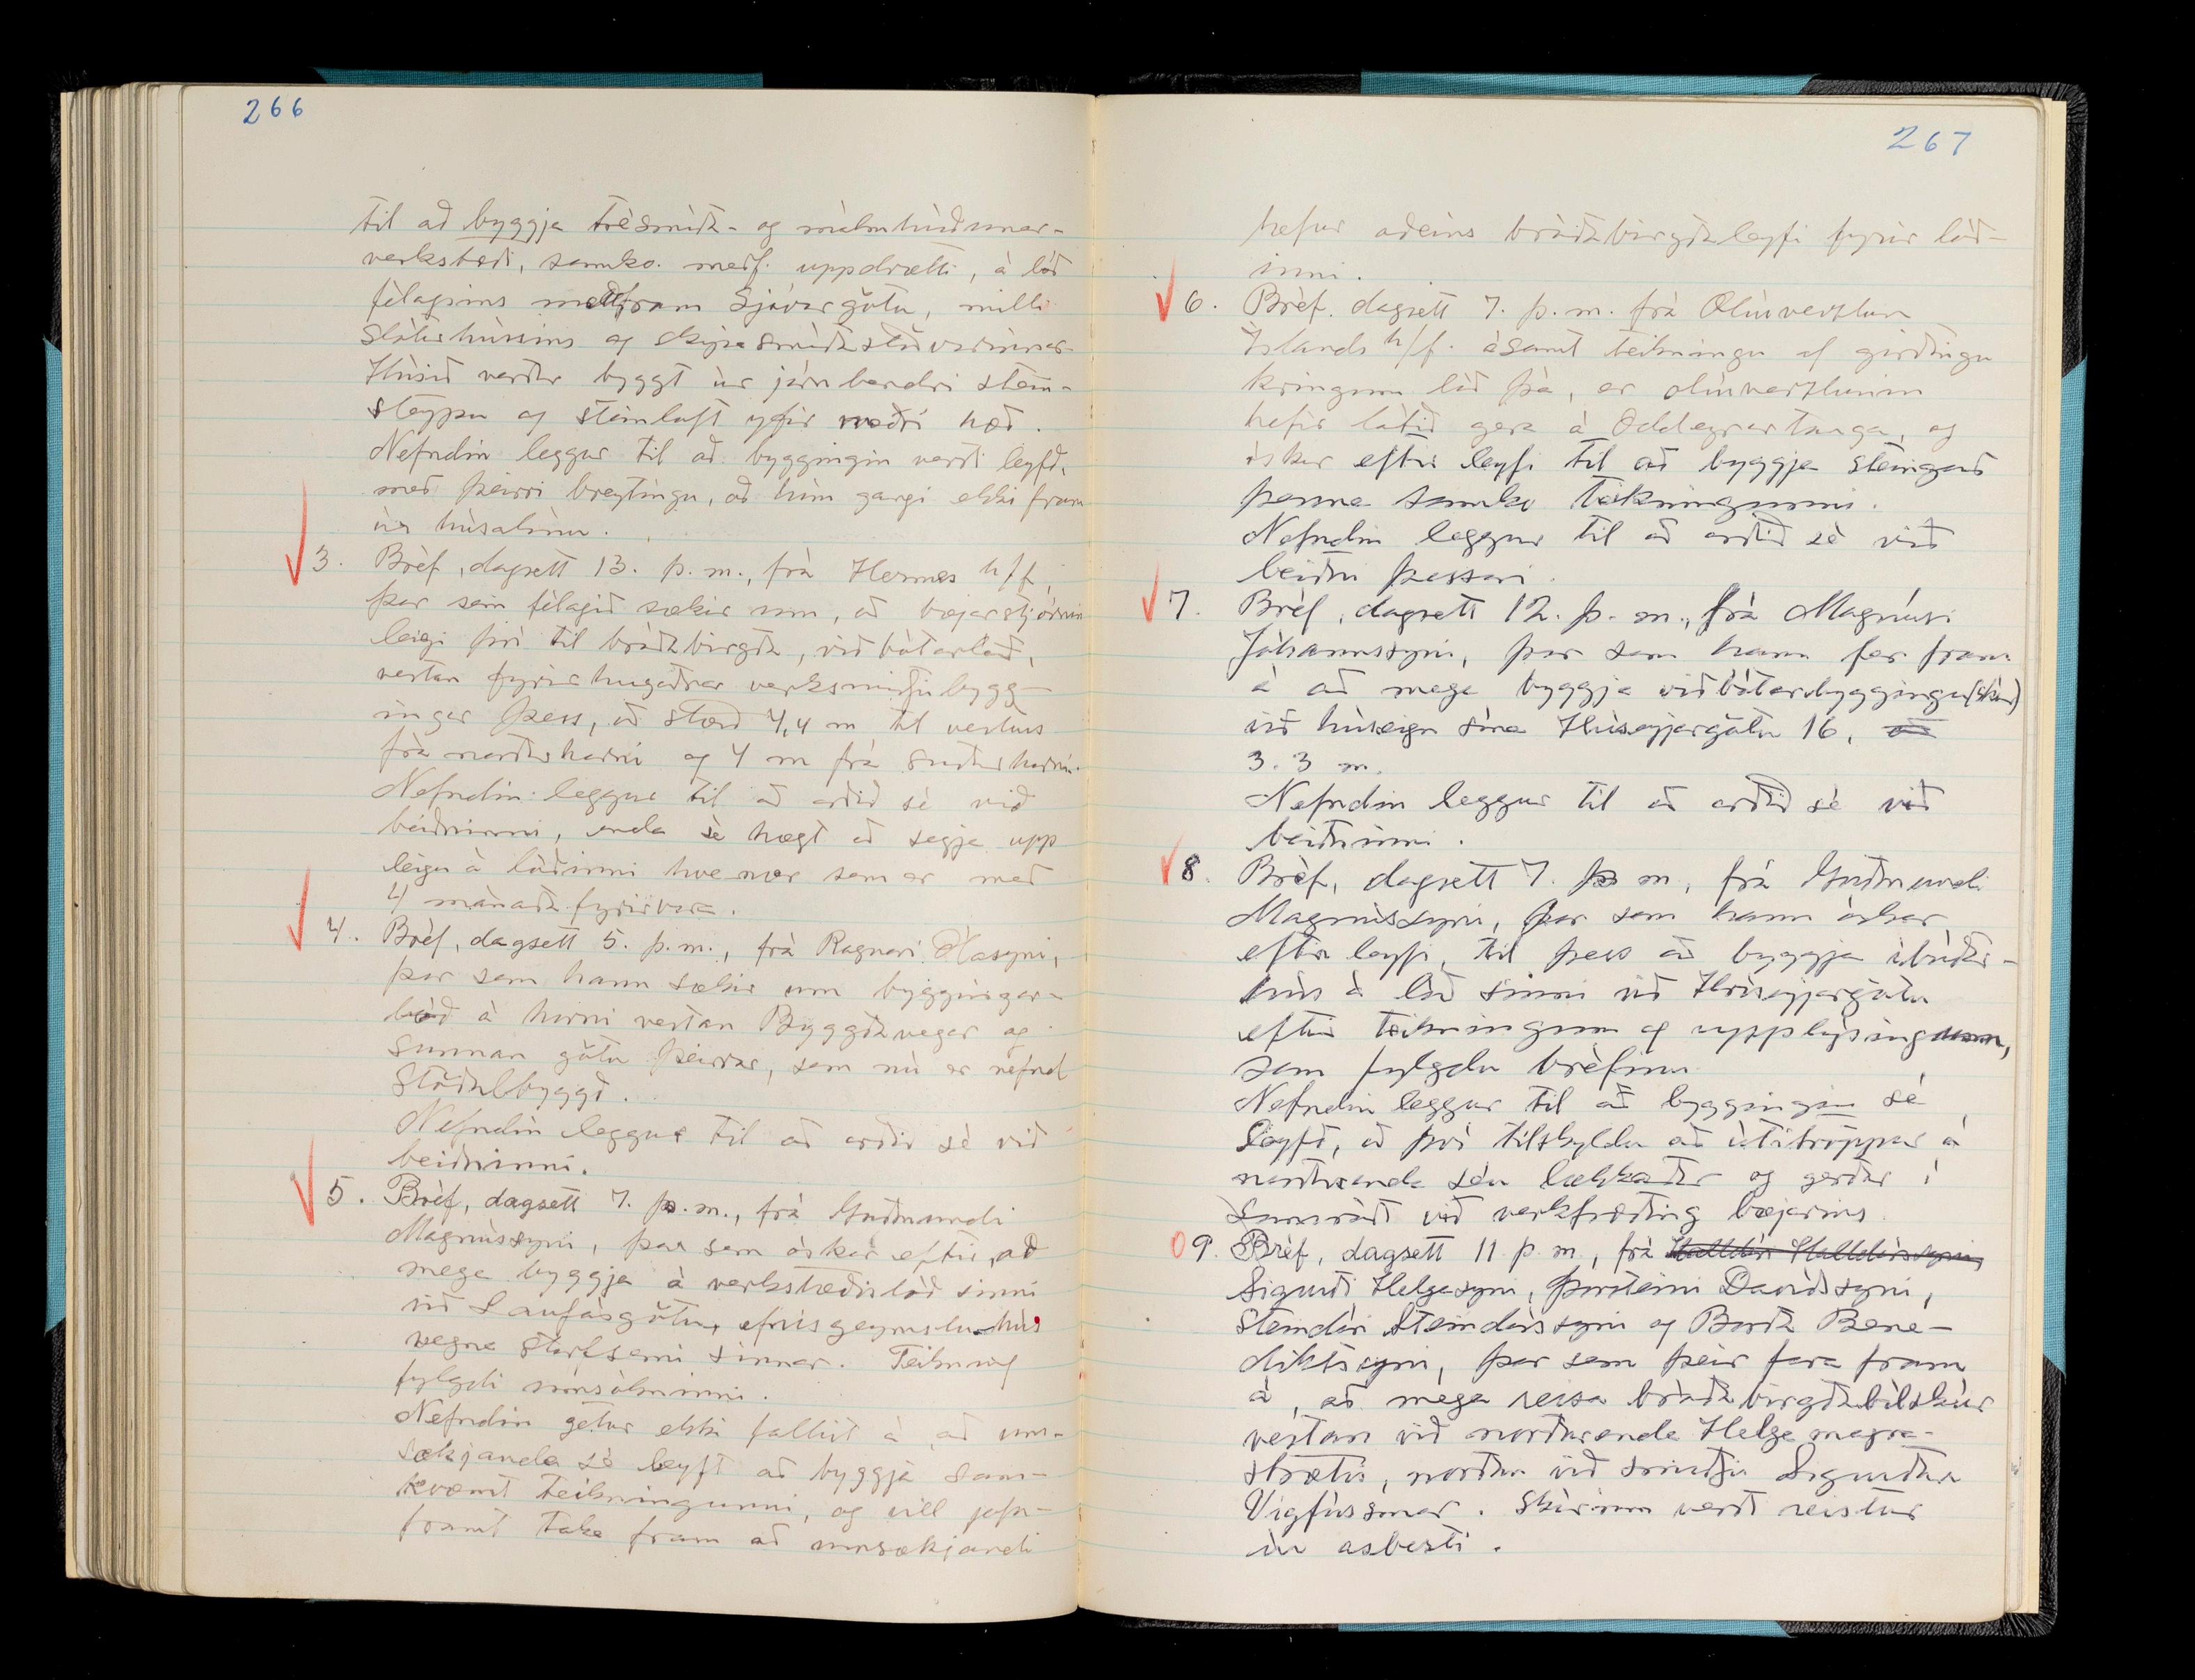 266
til að byggja trésmíða- og málmhúðunar-
verkstæði, samkv. meðf. uppdrætti, á lóð
félagsins meðfram Sjávargötu, milli
Sláturhússins og skipasmíðastöðvarinnar.
Húsið verður byggt úr járnbendri stein-
steypu og steinloft yfir neðri hæð.
Nefndin leggur til að byggingin verði leyfð,
með þeirri breytingu, að hún gangi ekki fram
úr húsalínu.
3. Bréf, dagsett 13. þ.m., frá Hermes h/f,
þar sem félagið sækir um, að bæjarstjórnin
leigi því til bráðabirgða, viðbótarlóð,
vestan fyrirhugaðrar verksmiðjubygg-
ingar þess, að stærð 4,4 m til vesturs
frá norðurhorni og 4 m frá suðurhorni.
Nefndin leggur til að orðið sé við
beiðninni, enda sé hægt að segja upp
leigu á lóðinni hvenær sem er með
4 mánaða fyrirvara.
4. Bréf, dagsett 5. þ.m., frá Ragnari Ólasyni,
þar sem hann sækir um byggingar-
lóð á horni vestan Byggðavegar og
sunnan götu þeirrar, sem nú er nefnd
Stöðulbyggð.
Nefndin leggur til að orðið sé við
beiðninni.
5. Bréf, dagsett 7. þ.m., frá Guðmundi
Magnússyni, þar sem óskar eftir, að
mega byggja á verkstæðislóð sinni
við Laufásgötu, efnisgeymsluhús
vegna starfsemi sinnar. Teikning
fylgdi umsókninni.
Nefndin getur ekki fallist á að um-
sækjanda sé leyft að byggja sam-
kvæmt teikningunni, og vill jafn-
framt taka fram að umsækjandi
267
hefur aðeins bráðabirgðaleyfi fyrir lóð-
inni.
6. Bréf, dagsett 7. þ.m. frá Olíuverzlun
Íslands h/f. ásamt teikningu af girðingu
kringum lóð þá, er olíuverzlunin
hefir látið gera á Oddeyrartanga, og
óskar eftir leyfi til að byggja steingarð
þenna samkv teikningunni.
Nefndin leggur til að orðið sé við
beiðni þessari.
7. Bréf, dagsett 12. þ.m., frá Magnúsi
Jóhannssyni, þar sem hann fer fram
á að mega byggja viðbótarbyggingu (skúr)
við húseign sína Hríseyjargötu 16,
3.3 m.
Nefndin leggur til að orðið sé við
beiðninni.
8. Bréf, dagsett 7. þ m, frá Guðmundi
Magnússyni, þar sem hann óskar
eftir leyfi, til þess að byggja íbúðar-
hús á lóð sinni við Hríseyjargötu
eftir teikningum og upplýsingum,
sem fylgdu bréfinu.
Nefndin leggur til að byggingin sé
leyfð, að því tilskyldu að útitröppur á
norðurenda séu lækkaðar og gerðar í
samráði við verkfræðing bæjarins.
9. Bréf, dagsett 11 þ m, frá Halldóri Halldórssyni,
Sigurði Helgasyni, Þorsteini Davíðssyni,
Steindóri Steindórssyni og Barða Bene-
diktssyni, þar sem þeir fara fram
á, að mega reisa bráðabirgðabílskúr
vestan við norðurenda Helga magra-
strætis, norðan við smiðju Sigurðar
Vigfússonar. Skúrinn verði reistur
úr asbesti.